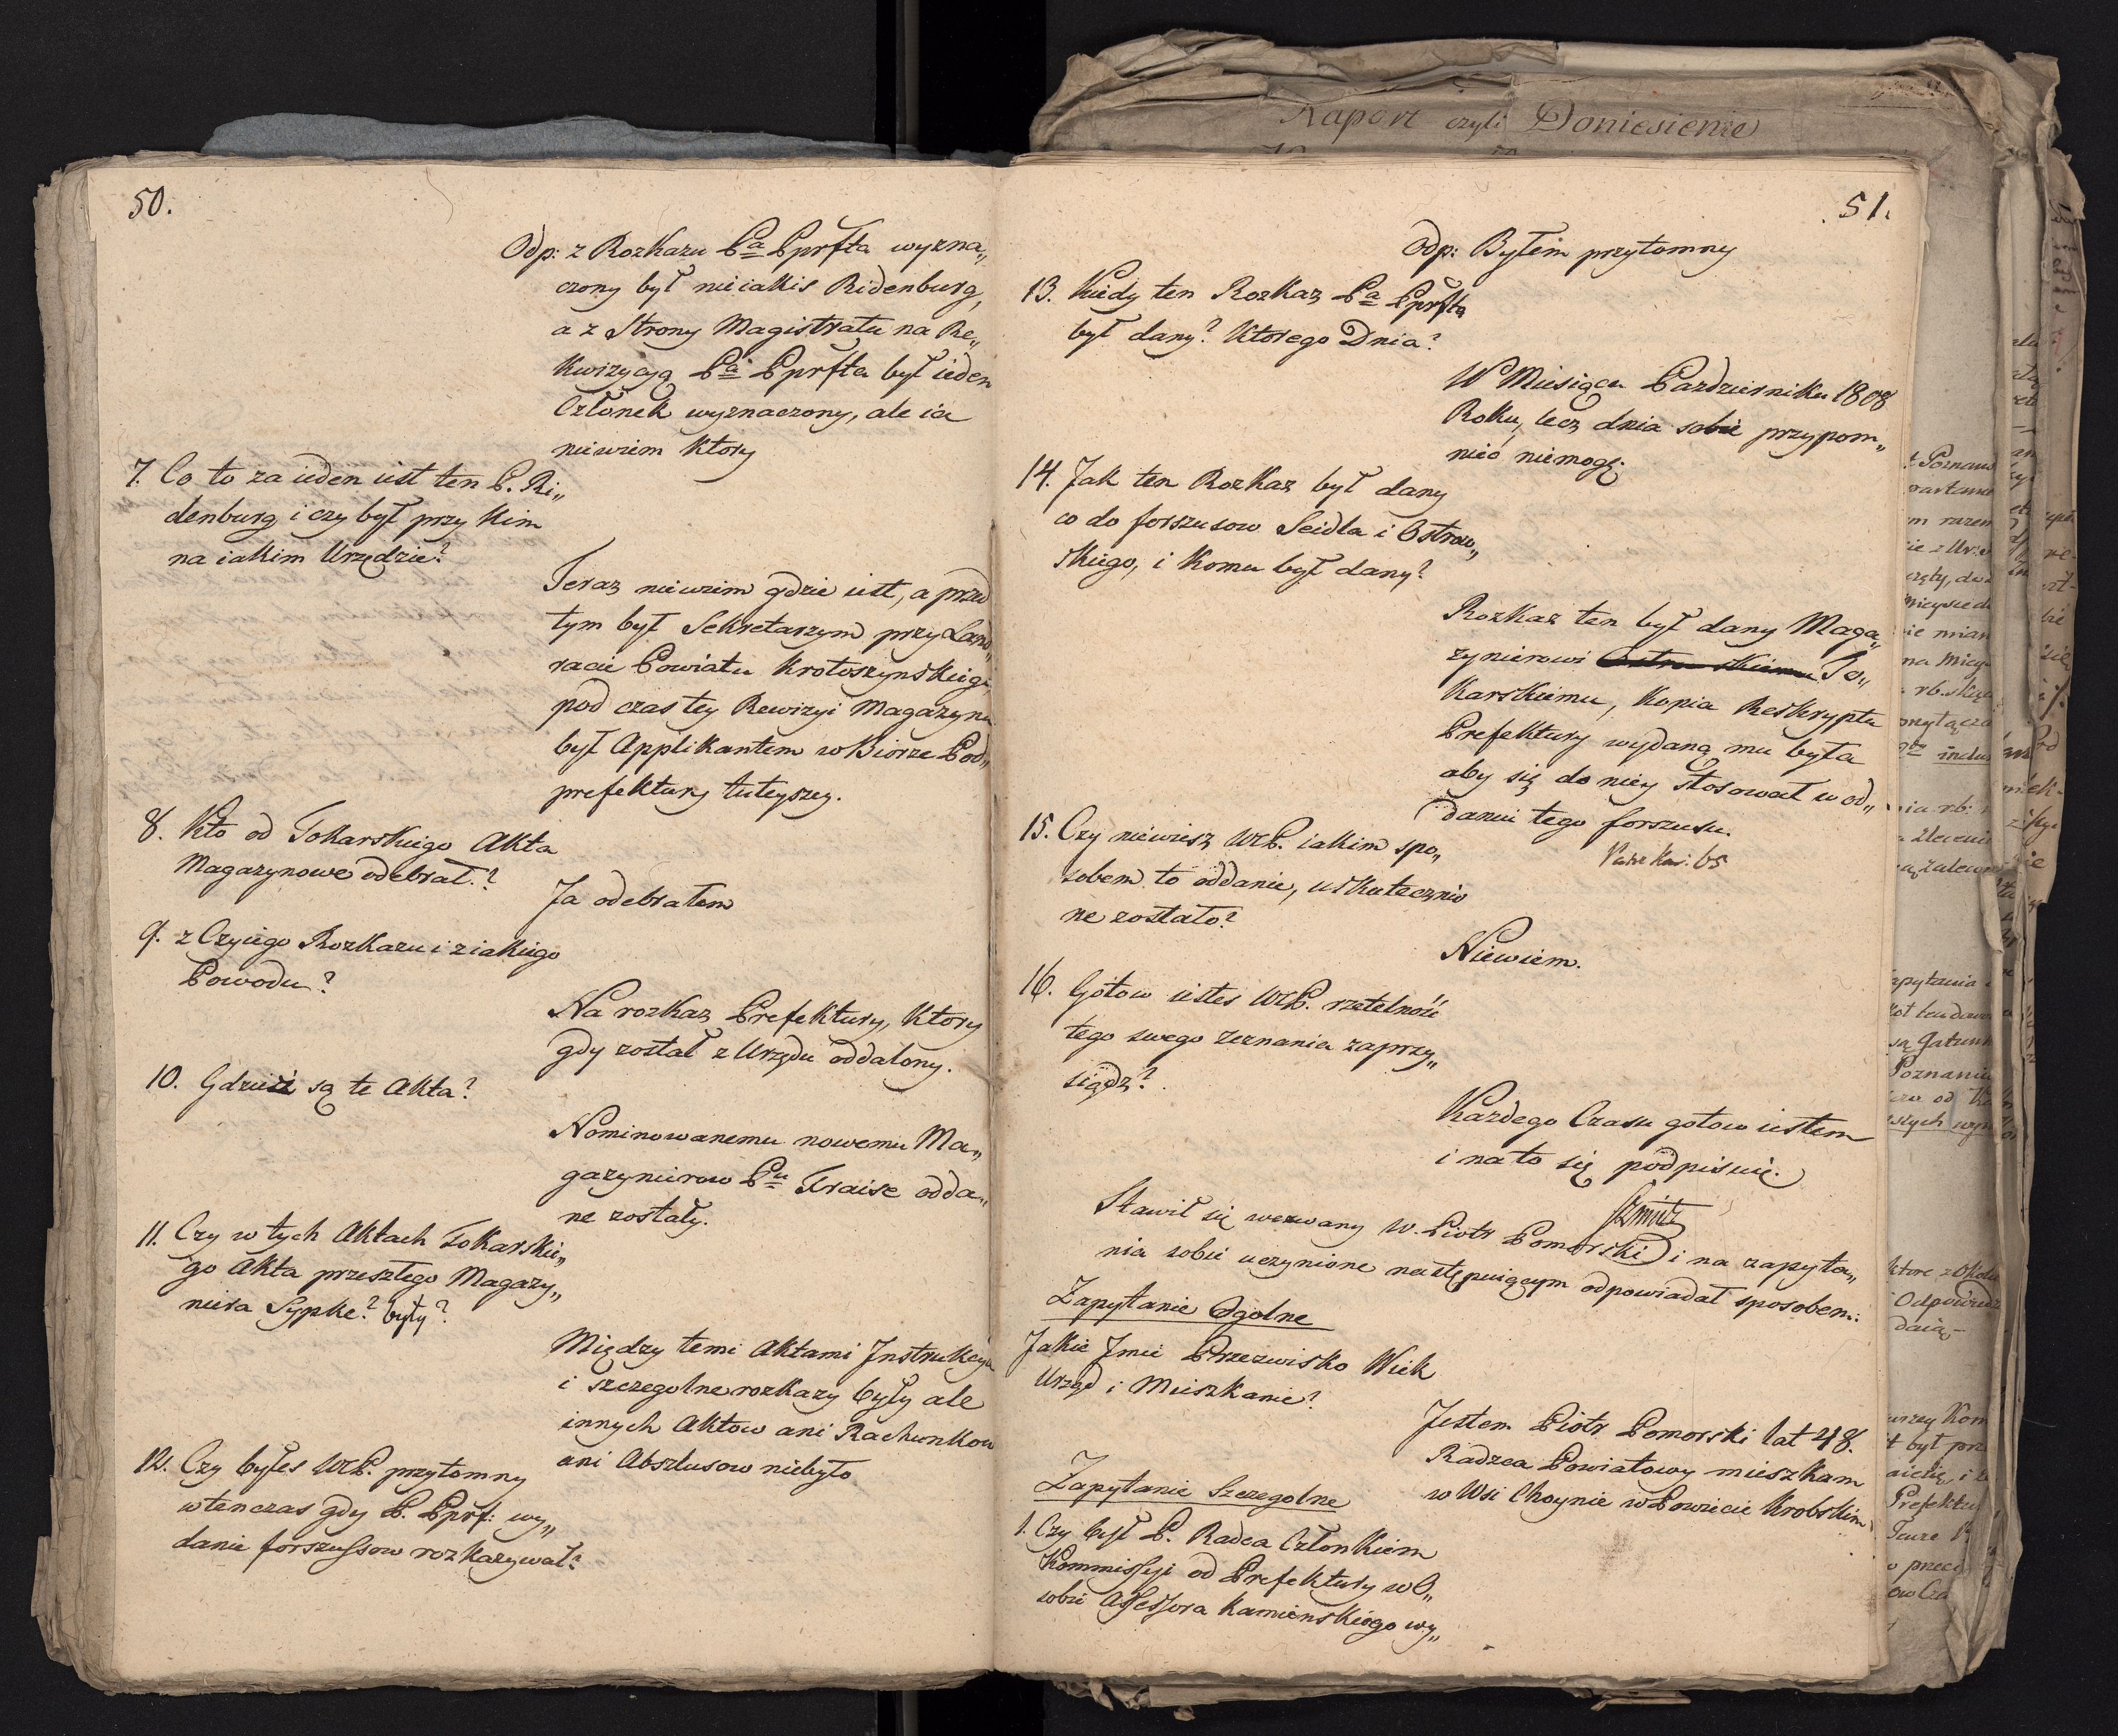 50.
Odp: z Rozkazu Pa Pprfta wyzna„
czony był nieiakis Ridenburg,
a z Strony Magistratu na Re„
kwizycyą Pa Pprfta był ieden
Członek wyznaczony, ale ia
niewiem ktory
7. Co to za ieden iest ten P. Ri„
denburg i czy był przy kim
na iakim Urzędzie?
Teraz niewiem gdzie iest, a przed
tym był Sekretarzym przy Land„
racie Powiatu Krotoszynskiego,
pod czas tey Rewizyi Magazynu
był Applikantem w Biorze Pod„
prefektury tuteyszey.
8. Kto od Tokarskiego Akta
Magazynowe odebrał.?
Ja odebrałem
9. z Czyiego Rozkazu i z iakiego
Powodu?
Na rozkaz Prefektury, ktory
gdy został z Urzędu oddalony.
10. Gdzież są te Akta?
Nominowanemu nowemu Ma„
gazynierow Pu Fraise odda„
ne zostały.
11. Czy w tych Aktach Tokarskie„
go Akta przeszłego Magazy„
niera Sypke? były?
Między temi Aktami Instrukcyia
i szczegolne rozkazy były ale
innych Aktow ani Rachunkow
ani Abszlusow niebyło
12. Czy byłes WP. przytomny
wtenczas gdy P. Pprf: wy„
danie forszussow rozkazywał?
51.
Odp: Byłem przytomny
13. Kiedy ten Rozkaz Pa Pprfta
był dany? Ktorego Dnia?
W Miesiącu Pazdzierniku 1808
Roku, lecz dnia sobie przypom„
nieć niemogę.
14. Jak ten Rozkaz był dany
co do forszusow Seidla i Ostrow„
skiego, i komu był dany?
Rozkaz ten był dany Maga„
zynierowi Ostrowskiemu To„
karskiemu, kopia Reskryptu
Prefektury wydaną mu była
aby się do niey stosował w od„
daniu tego forszusu.
65
15. Czy niewiesz WP. iakim spo„
sobem to oddanie, uskutecznio
ne zostało?
Niewiem.
16. Gotow iestes WP. rzetelność
tego swego zeznania zaprzy„
siądz?
Kazdego Czasu gotow iestem
i na to się podpisuię.
Szmitz
Stawił się wezwany W. Piotr Pomorski i na zapyta„
nia sobie uczynione następuiącym odpowiadał sposobem:
Zapytanie Ogolne
Jakie Imie Przezwisko Wiek
Urząd i Mieszkanie?
Jestem Piotr Pomorski lat 48.
Radzca Powiatowy mieszkam
w Wsi Choynie w Powiecie Krobskim
Zapytanie Szczegolne
1. Czy był P. Radca Członkiem
Kommissyi od Prefektury w O„
sobie Assessora Kamienskiego wy„
Raport czyli Doniesienie